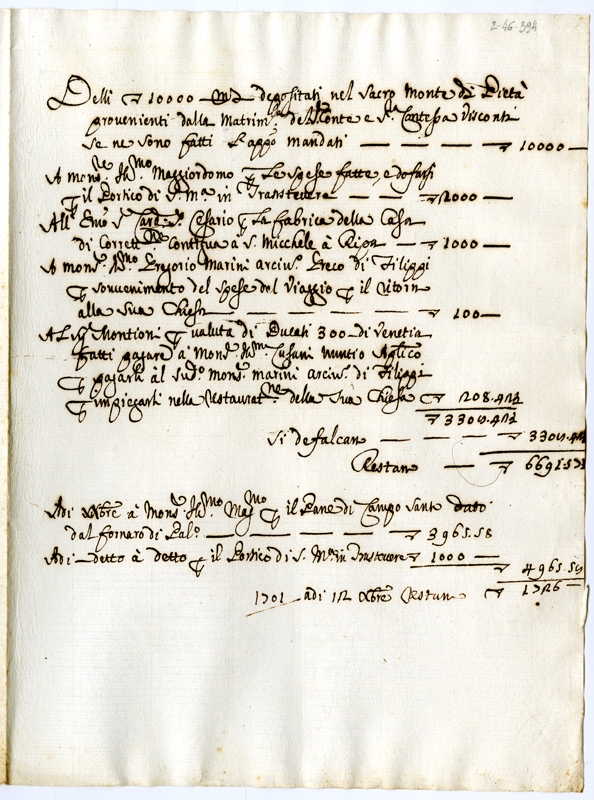 2-46-394
Delli ∇ 10000 mta depositati nel Sacro Monte di Pietà
provenienti dalla Matrim.le del Conte e S.ra Contessa Visconti
se ne sono fatti l'aggo mandati — — — ∇ 10000 —
A mons.re Ill.mo Maggiordomo p le spese fatte, e da farsi
p il Portico di S. M.a in Transtevere — — ∇ 2000 —
All' Emo S.r Card. S. Cesario p la fabrica della Casa
di Corrett.ne contigua a S. Micchele à Ripa — ∇ 1000 —
A mons.r Ill.mo Gregorio Marini arciv.o Greco di Filippi
p sovvenimento del spese del Viaggio p il ritorn
alla sua Chiesa — — — — ∇ 100 —
Al Sig.r Montioni p valuta di Ducati 300 di Venetia
fatti pagare à Mons.r Ill.mo Cusani nuntio Aplico
p pagarli al sud.o mons.r marini arciv.o di Filippi
p impiegarli nella restaurat.ne della sua Chiesa ∇ 208.42½
∇ 3308.42½
Si defalcan — — — ∇ 3308.42
Restano — ∇ 6691.57½
Adi Xbre à Mons.r Ill.mo Mag.mo p il Pane di Campo Santo dato
dal fornaro di Pal.o — — — ∇ 3965.58
Adi detto à detto p il Portico di S. M.a in Trastevere ∇ 1000 —
∇ 4965.58
1701 adi 12 Xbre Restan ∇ 1726 —